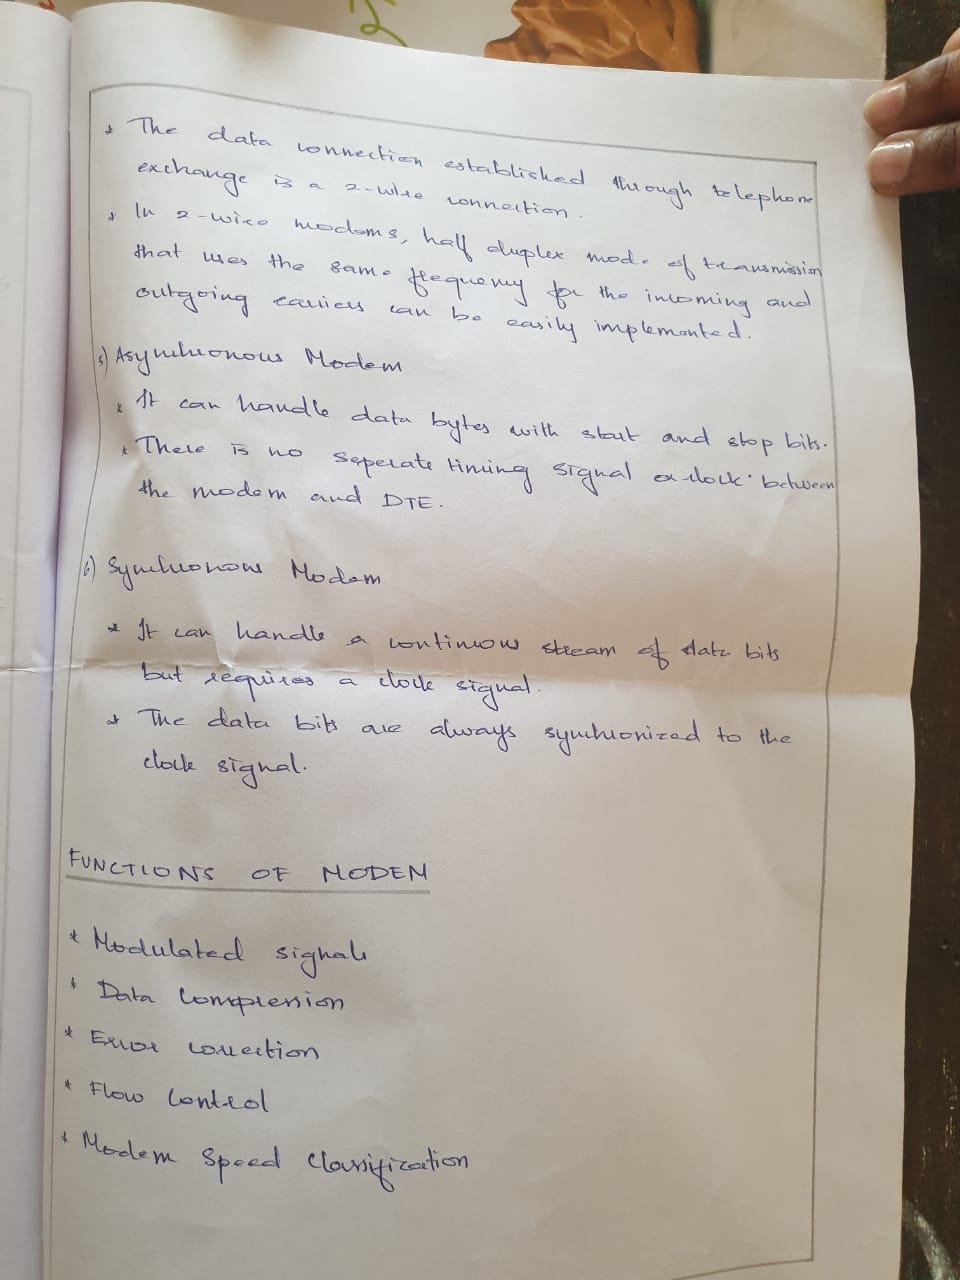 * The data connection established through telephone
exchange is a 2-wire connection.
* In 2-wire modems, half duplex mode of transmission
that uses the same frequency for the incoming and
outgoing carriers can be easily implemented.
5) Asynchronous Modem
* It can handle data bytes with start and stop bits.
* There is no seperate timing signal or clock between
the modem and DTE.
6) Synchronous Modem
* It can handle a continous stream of data bits
but requires a clock signal.
* The data bits are always synchronized to the
clock signal.
FUNCTIONS OF MODEM
* Modulated signals
* Data Compression
* Error correction
* Flow Control
* Modem Speed Classification